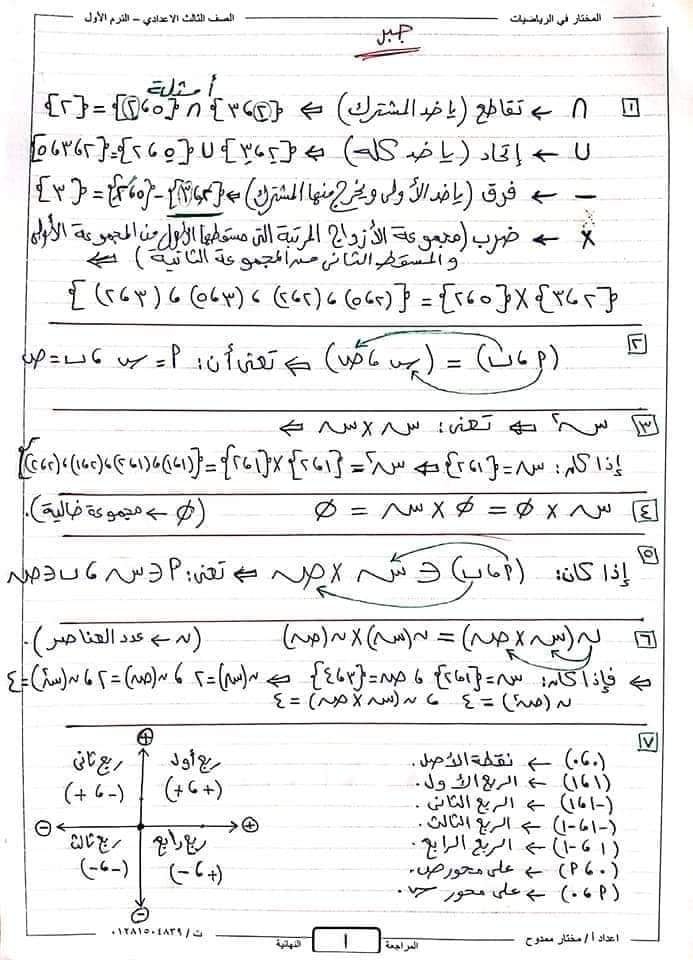 المختار في الرياضيات
الصف الثالث الاعدادي - الترم الأول
جبر
أمثلة
١ ∩ ← تقاطع (ياخد المشترك) ⇐ {٣،٢} ∩ {٢،٥} = {٢}
∪ ← إتحاد (ياخد كله) ⇐ {٣،٢} ∪ {٢،٥} = {٥،٣،٢}
− ← فرق (ياخد الأولى ويخرج منها المشترك) ⇐ {٣،٢} − {٢،٥} = {٣}
× ← ضرب (مجموعة الأزواج المرتبة التى مسقطها الأول من المجموعة الأولى
والمسقط الثانى من المجموعة الثانية) ⇐
{٣،٢} × {٢،٥} = {(٥،٢)،(٢،٢)،(٥،٣)،(٢،٣)}
٢ (٩،ب) = (س،ص) ⇐ تعنى أن: ٩ = س، ب = ص
٣ س٢ ⇐ تعنى: س × س ⇐
إذا كان: س = {٢،١} ⇐ س٢ = {٢،١} × {٢،١} = {(١،١)،(٢،١)،(١،٢)،(٢،٢)}
٤ س × ∅ = ∅ × س = ∅ (∅ ← مجموعة خالية).
٥ إذا كان: (٩،ب) ∋ س × ص ⇐ تعنى: ٩ ∋ س، ب ∋ ص
٦ ن(س × ص) = ن(س) × ن(ص) (ن ← عدد العناصر).
⇐ فإذا كان: س = {٢،١}، ص = {٤،٣} ⇐ ن(س) = ٢، ن(ص) = ٢، ن(س٢) = ٤
ن(ص٢) = ٤، ن(س × ص) = ٤
٧ (٠،٠) ← نقطة الأصل.
(١،١) ← الربع الأول.
(-١،١) ← الربع الثانى.
(-١،-١) ← الربع الثالث.
(١،-١) ← الربع الرابع.
(٠،٩) ← على محور ص.
(٩،٠) ← على محور س.
+
ربع أول
(+،+)
ربع ثانى
(-،+)
- +
ربع ثالث
(-،-)
ربع رابع
(+،-)
-
اعداد أ/ مختار ممدوح
المراجعة
١
النهائية
ت/ ٠١٢٨١٥٠٤٨٣٩